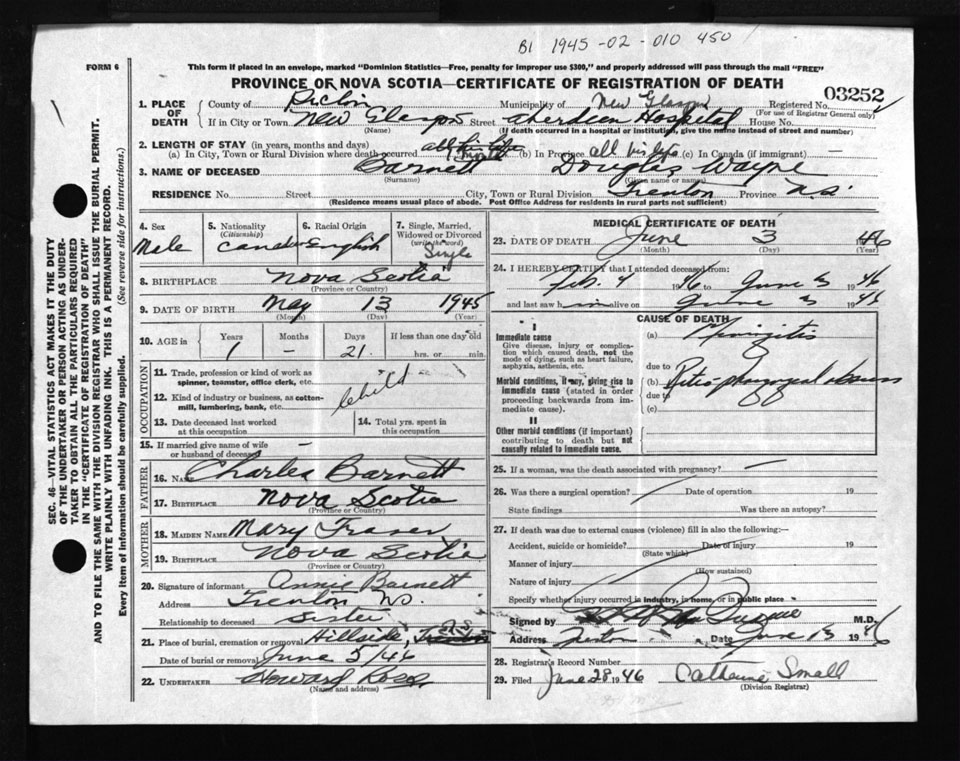 B1 1945-02-010 450
FORM 6
This form if placed in an envelope, marked "Dominion Statistics—Free, penalty for improper use $300," and properly addressed will pass through the mail "FREE"
PROVINCE OF NOVA SCOTIA—CERTIFICATE OF REGISTRATION OF DEATH
03252
1. PLACE OF DEATH
County of Pictou Municipality of New Glasgow Registered No.
(For use of Registrar General only)
If in City or Town New Glasgow Street Aberdeen Hospital House No.
(Name) (If death occurred in a hospital or institution, give the name instead of street and number)
2. LENGTH OF STAY (in years, months and days)
(a) In City, Town or Rural Division where death occurred (b) In Province all his life (c) In Canada (if immigrant) —
3. NAME OF DECEASED Barnett Douglas Wayne
(Surname) (Given name or names)
RESIDENCE No. Street City, Town or Rural Division Trenton Province N.S.
(Residence means usual place of abode. Post Office Address for residents in rural parts not sufficient)
4. Sex
Male
5. Nationality
(Citizenship)
6. Racial Origin
English
7. Single, Married, Widowed or Divorced
(write the word)
Single
8. BIRTHPLACE Nova Scotia
(Province or Country)
9. DATE OF BIRTH May 13 1945
(Month) (Day) (Year)
10. AGE in
Years Months Days If less than one day old
1 — 21 hrs. or min.
OCCUPATION
11. Trade, profession or kind of work as spinner, teamster, office clerk, etc.
12. Kind of industry or business, as cotton-mill, lumbering, bank, etc.
Child
13. Date deceased last worked at this occupation
14. Total yrs. spent in this occupation
15. If married give name of wife or husband of deceased —
FATHER
16. Name Charles Barnett
17. BIRTHPLACE Nova Scotia
(Province or Country)
MOTHER
18. MAIDEN NAME Mary Fraser
19. BIRTHPLACE Nova Scotia
(Province or Country)
20. Signature of informant Annie Barnett
Address Trenton N.S.
Relationship to deceased Sister
21. Place of burial, cremation or removal Hillside, N.S.
Date of burial or removal June 5/46
22. UNDERTAKER Howard Rose
(Name and address)
MEDICAL CERTIFICATE OF DEATH
23. DATE OF DEATH June 3 1946
(Month) (Day) (Year)
24. I HEREBY CERTIFY that I attended deceased from:
Feb. 4 1946 to June 3 1946
and last saw him alive on June 3 1946
CAUSE OF DEATH
I
Immediate cause
Give disease, injury or complication which caused death, not the mode of dying, such as heart failure, asphyxia, asthenia, etc.
(a) Meningitis
due to
Morbid conditions, if any, giving rise to immediate cause (stated in order proceeding backwards from immediate cause).
(b) Retropharyngeal abscess
due to
(c)
II
Other morbid conditions (if important) contributing to death but not causally related to immediate cause.
25. If a woman, was the death associated with pregnancy? —
26. Was there a surgical operation? Date of operation 19
State findings Was there an autopsy?
27. If death was due to external causes (violence) fill in also the following:—
Accident, suicide or homicide? Date of injury 19
(State which)
Manner of injury
(How sustained)
Nature of injury
Specify whether injury occurred in industry, in home, or in public place
Signed by M.D.
Address Trenton Date June 13 1946
28. Registrar's Record Number
29. Filed June 28 1946 Catherine Small
(Division Registrar)
SEC. 46—VITAL STATISTICS ACT MAKES IT THE DUTY
OF THE UNDERTAKER OR PERSON ACTING AS UNDER-
TAKER TO OBTAIN ALL THE PARTICULARS REQUIRED
IN THE "CERTIFICATE OF REGISTRATION OF DEATH"
AND TO FILE THE SAME WITH THE DIVISION REGISTRAR WHO SHALL ISSUE THE BURIAL PERMIT.
WRITE PLAINLY WITH UNFADING INK. THIS IS A PERMANENT RECORD.
Every item of information should be carefully supplied. (See reverse side for instructions.)